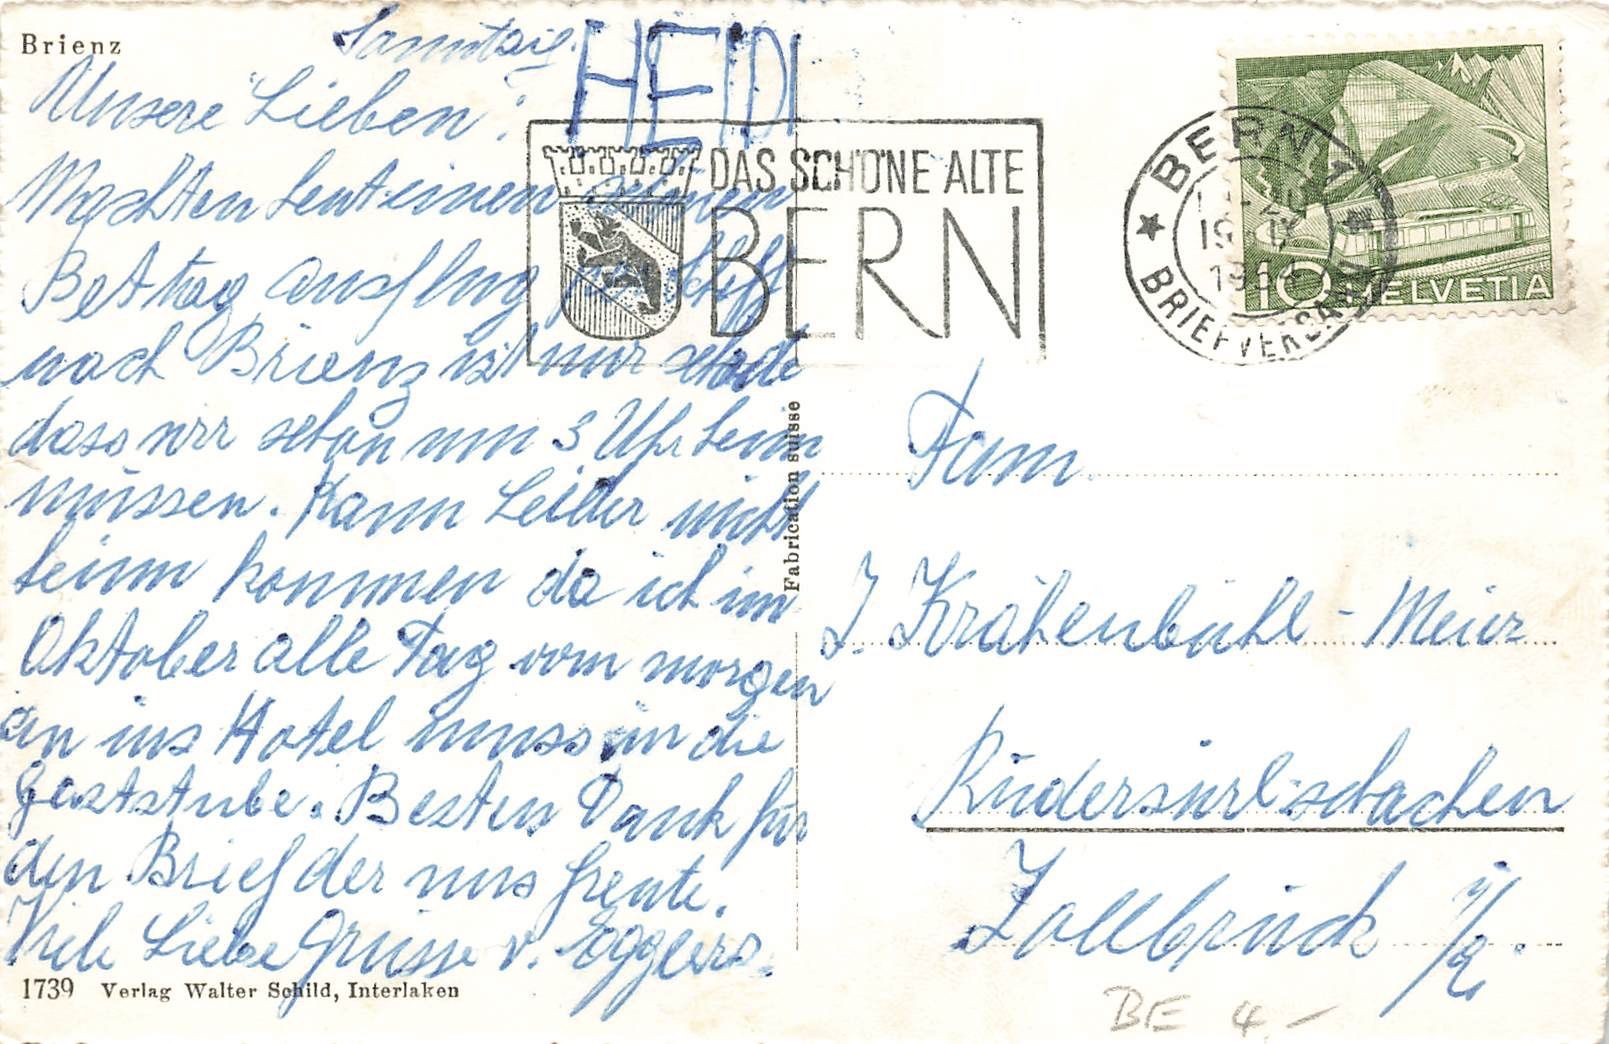 Brienz
Sonntag.
HEIDI
Unsere Lieben!
Machten heut einen schönen
Bettag ausflug per Schiff
nach Brienz ist nur schade
dass wir schon um 3 Uhr heim
müssen. Kann Leider nicht
heim kommen da ich im
Oktober alle Tag vom morgen
an ins Hotel muss in die
Gaststube. Besten Dank für
den Brief der uns freute.
Viele Liebe Grüsse v. Egglers.
1739 Verlag Walter Schild, Interlaken
Fabrication suisse
DAS SCHÖNE ALTE
BERN
BERN 1
BRIEFVERSAND
10 HELVETIA
Fam.
J. Krähenbühl-Meier
Rüderswil-schachen
Zollbrück i/E.
BE 4.-